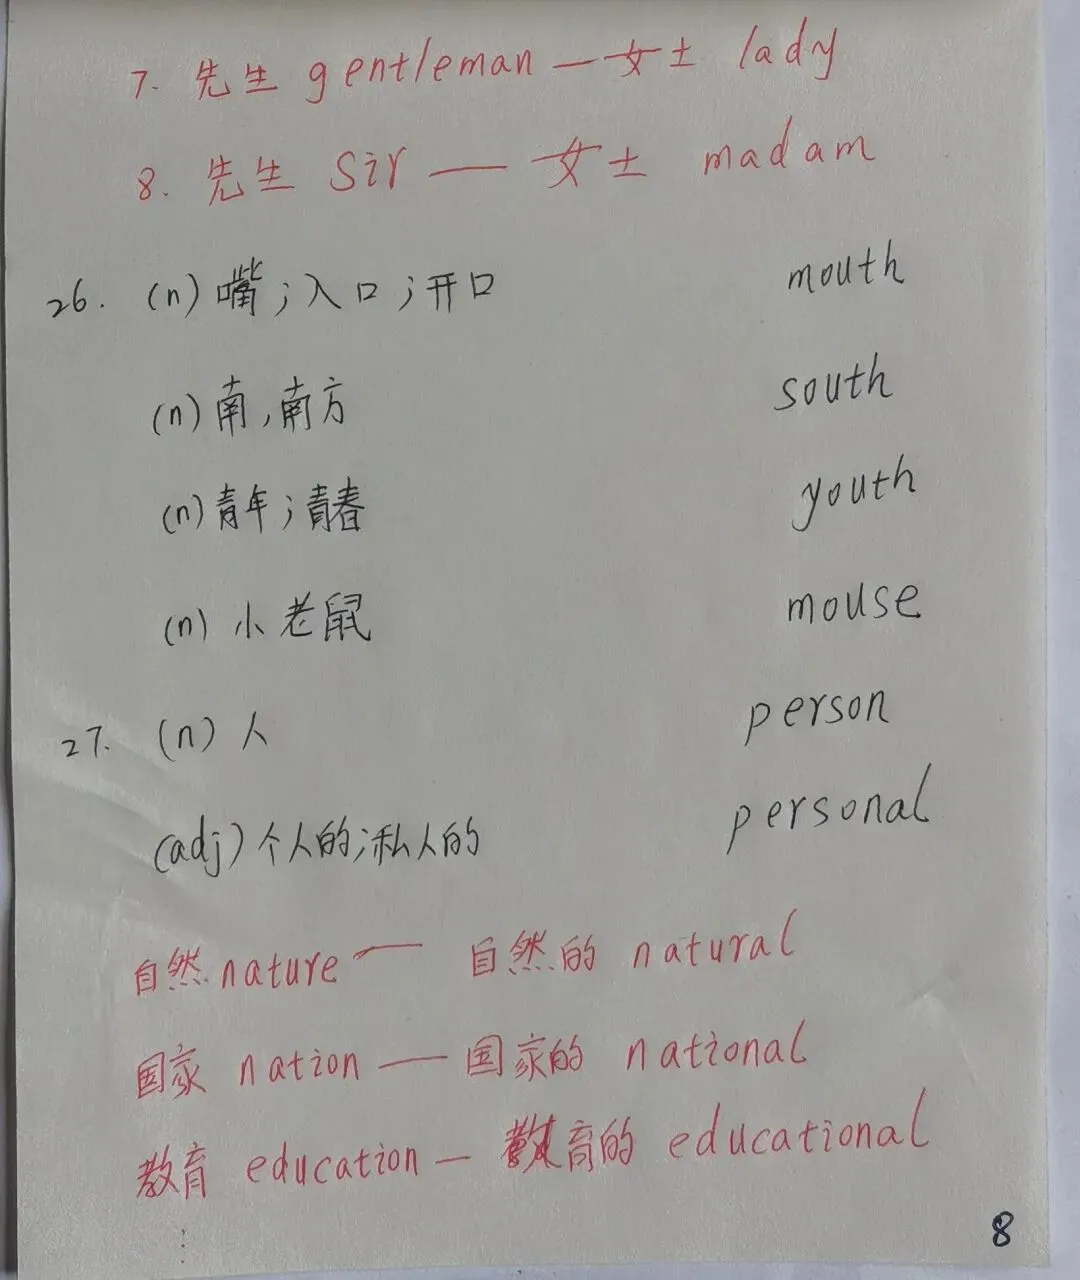 7. 先生 gentleman — 女士 lady
8. 先生 Sir — 女士 madam
26. (n) 嘴；入口；开口 mouth
(n) 南，南方 south
(n) 青年；青春 youth
(n) 小老鼠 mouse
27. (n) 人 person
(adj) 个人的；私人的 personal
自然 nature — 自然的 natural
国家 nation — 国家的 national
教育 education — 教育的 educational
⋮
8